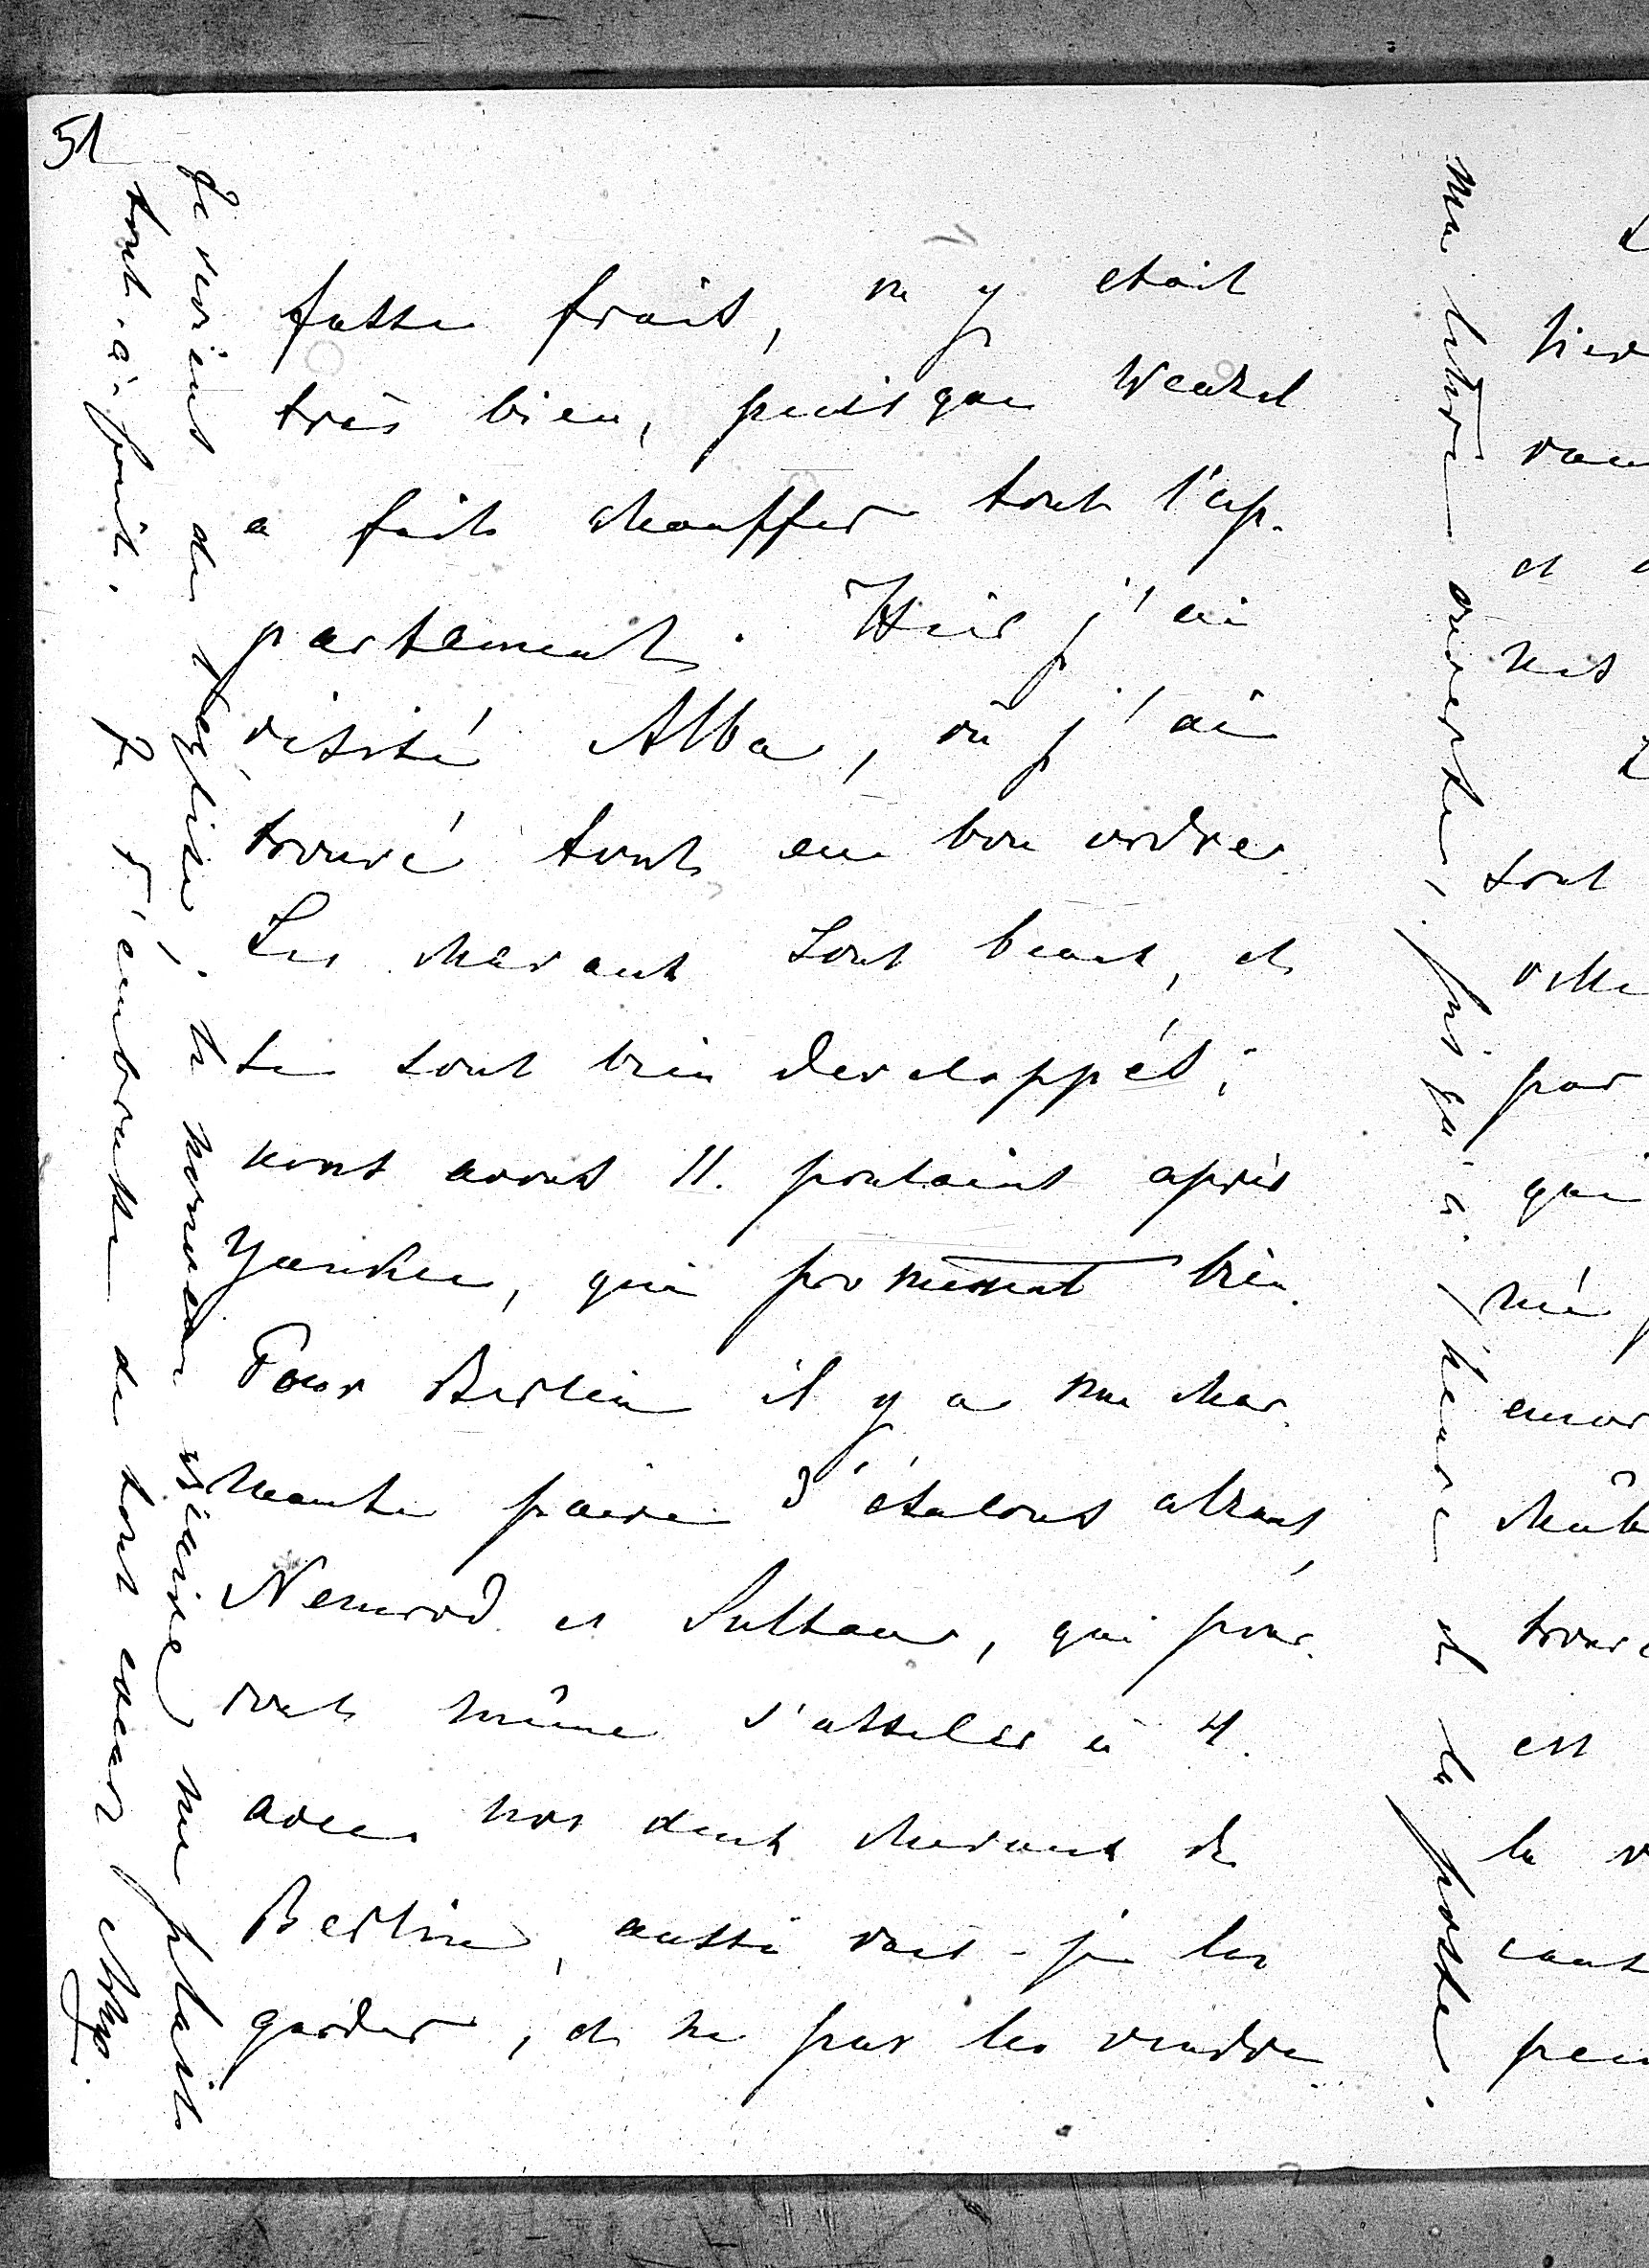 51
fasse frais, on y etait
très bien, puisque Wenzel
a fait chauffer tout l'ap-
partement. Hier j'ai
visité Alba, où j'ai
trouvé tout en bon ordre.
Les chevaux sont beaux, et
se sont bien developpés;
nous avons 11. poulains après
Yankee, qui promettent bien.
Pour Berlin il y a une char-
mante paire d'étalons alezans
Nemrod et Sultan, qui pour-
rait même s'atteler à 4.
avec nos deux chevaux de
Berlin, aussi vais-je les
garder, et ne pas les vendre.
Je reviens de l'église; le nouveau vicaire me plait
tout-à-fait. Je t'embrasse de tout coeur
Ma lettre ouverte, jusqu'à l'heure de la poste.
hier
et
nos
sont
ville
par
qui
encor
trouvé
est
la